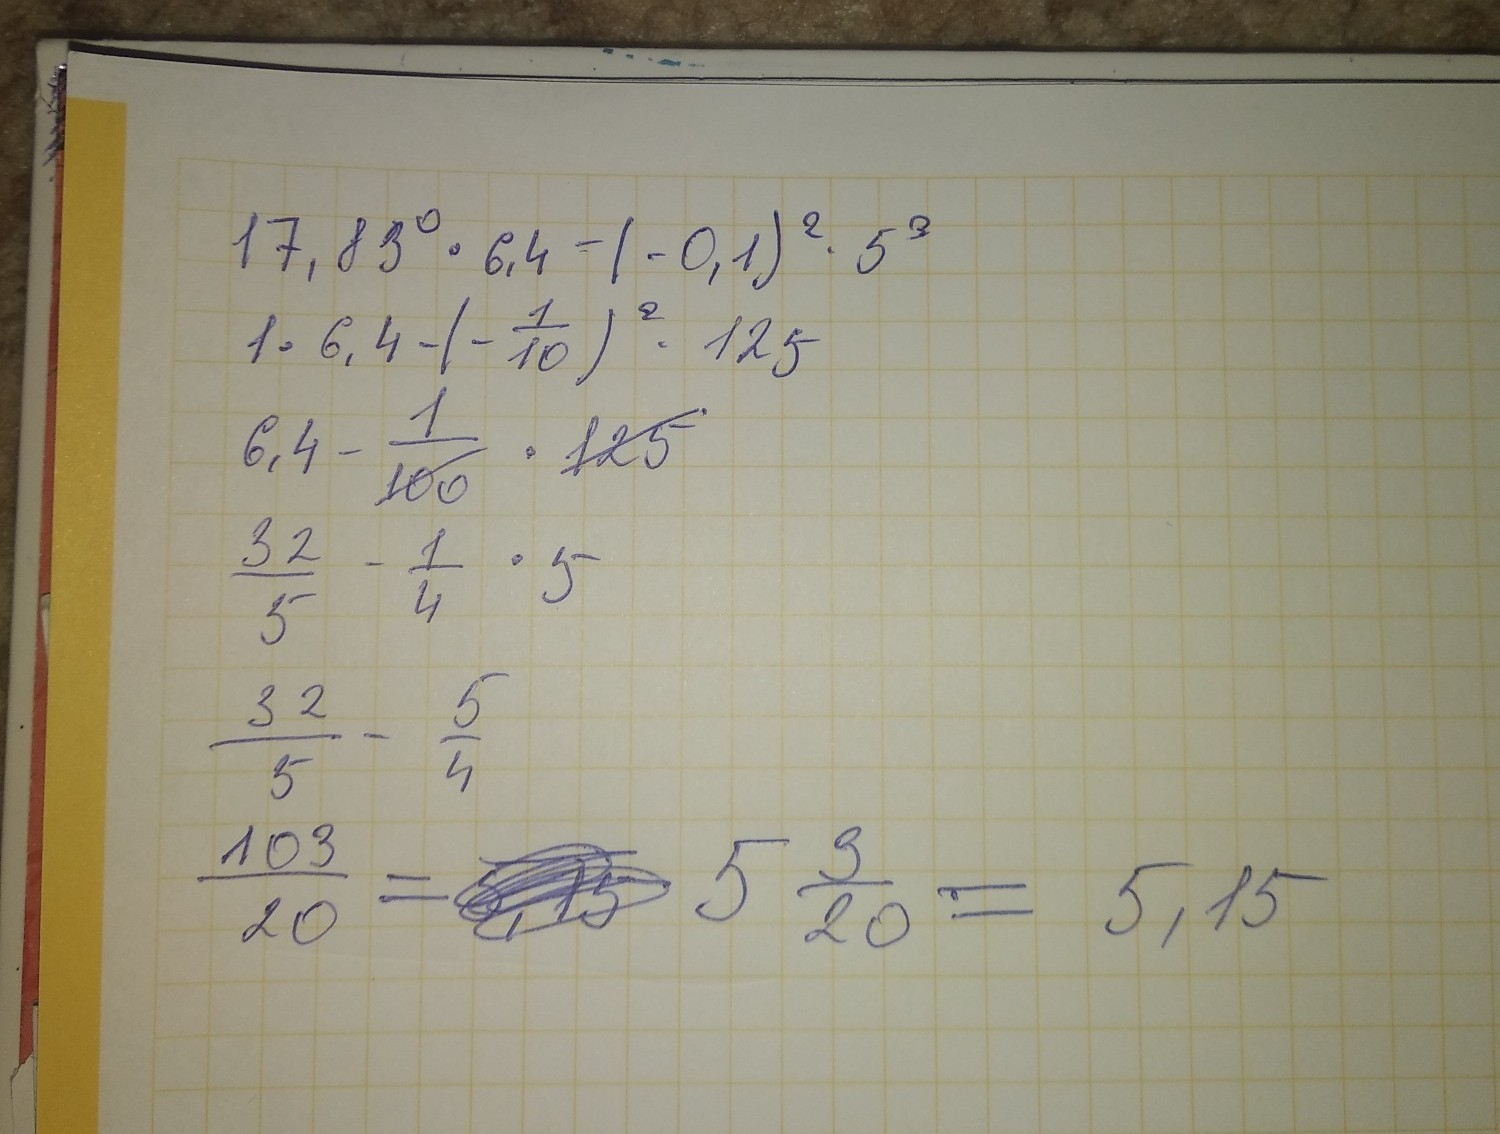 17,83⁰ · 6,4 - (-0,1)² · 5³
1 · 6,4 - (-1/10)² · 125
6,4 - 1/100 · 125
32/5 - 1/4 · 5
32/5 - 5/4
103/20 = 5,15 5 3/20 = 5,15